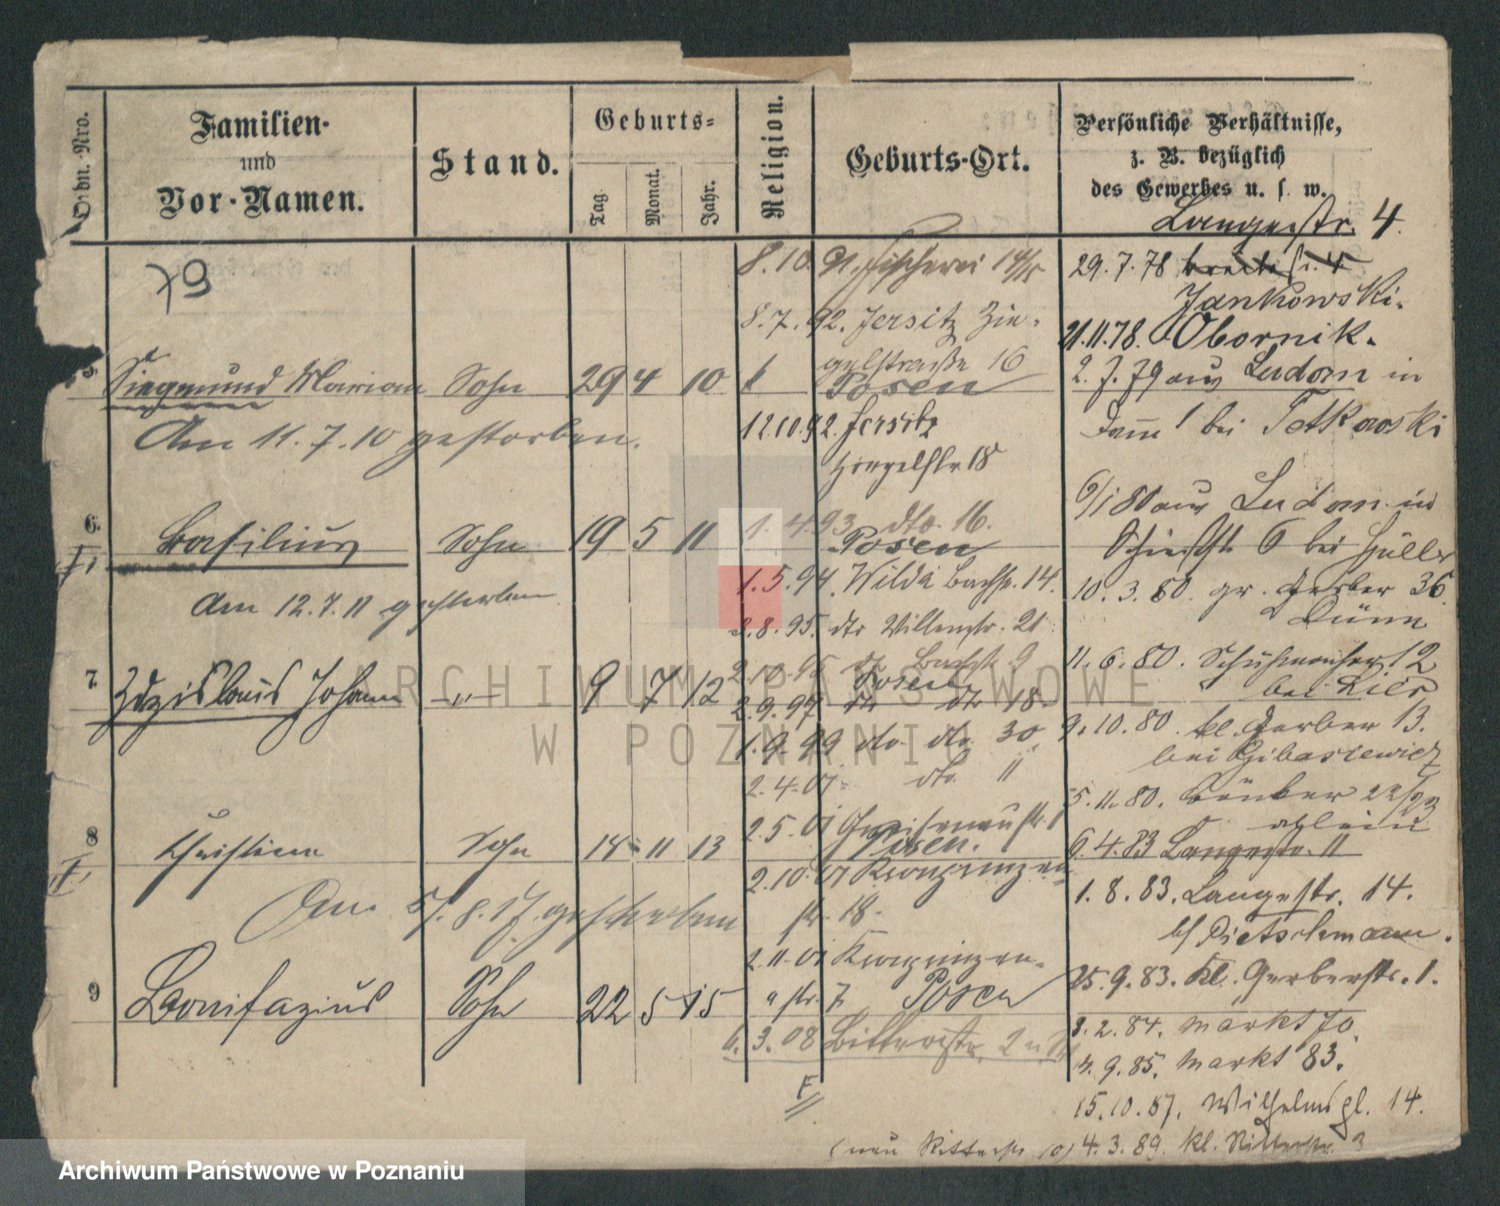 Ordn.-Nro.
Familien-
und
Vor-Namen.
Stand.
Geburts-
Tag.
Monat.
Jahr.
Religion.
Geburts-Ort.
Persönliche Verhältnisse,
z. B. bezüglich
des Gewerbes u. s. w.
Langestr. 4.
79
8.10.91. Fischerei
8.7.92. Jersitz Zie-
gelstraße 16
5. Siegmund Marian Sohn 29 4 10 k Posen
Am 11.7.10 gestorben.
12.10.92. Jersitz
Ziegelstr 18
1.4.93. dto. 16.
6. Basilius Sohn 19 5 11 Posen
1.5.94. Wilda Bachstr. 14.
Am 12.7.11 gestorben
3.8.95. dto 21
2.10.95 dto Bachstr 9
7. Zdzislaus Johann -„- 9 7 12 Posen
2.9.97 dto dto 18.
1.9.99 dto. dto. 30.
2.4.01 dto. "
2.5.01 Gneisenaustr. 1
8 Christian Sohn 14 11 13 Posen.
2.10.01 Kronprinzen-
str. 18.
Am 5.8.17. gestorben
2.11.01 Kronprinzen-
str. 7
9 Bonifazius Sohn 22 5 15 Posen
6.3.08
F
29.7.78 breite
Jankowski.
21.11.78. Obornik.
2.7.79 aus Ludom in
bei Tetkowski
6/1 80 aus Ludom in
6 bei Hüller
10.3.80. gr. Gerber 36.
Dünn
11.6.80. Schuhmacher 12
bei Lier
9.10.80. kl. Gerber 13.
bei Gibasiewicz
5.11.80. 22/23
allein
6.4.83 Langestr. 11
1.8.83. Langestr. 14.
b/ Pietschmann.
25.9.83. Kl. Gerberstr. 1.
3.2.84. Markt 70.
4.9.85. Markt 83.
15.10.87. Wilhelmspl. 14.
4.3.89. kl. Ritterstr. 3
(neu Ritterstr
ARCHIWUM PAŃSTWOWE
W POZNANIU
Archiwum Państwowe w Poznaniu